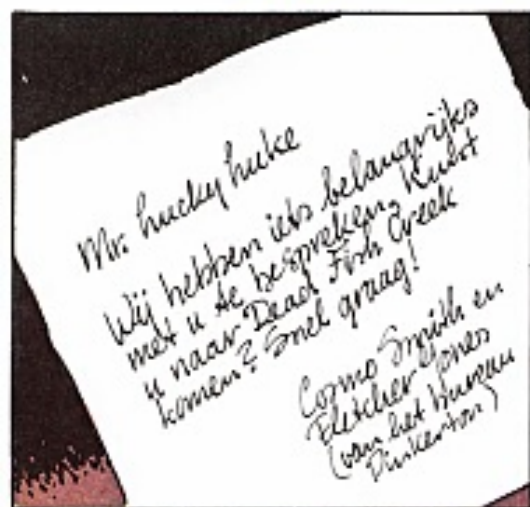 Mr. Lucky Luke
Wij hebben iets belangrijks
met u te bespreken. Kunt
u naar Dead Fish Creek
komen? Snel graag!
Cosmo Smith en
Fletcher Jones
(van het bureau
Pinkerton)